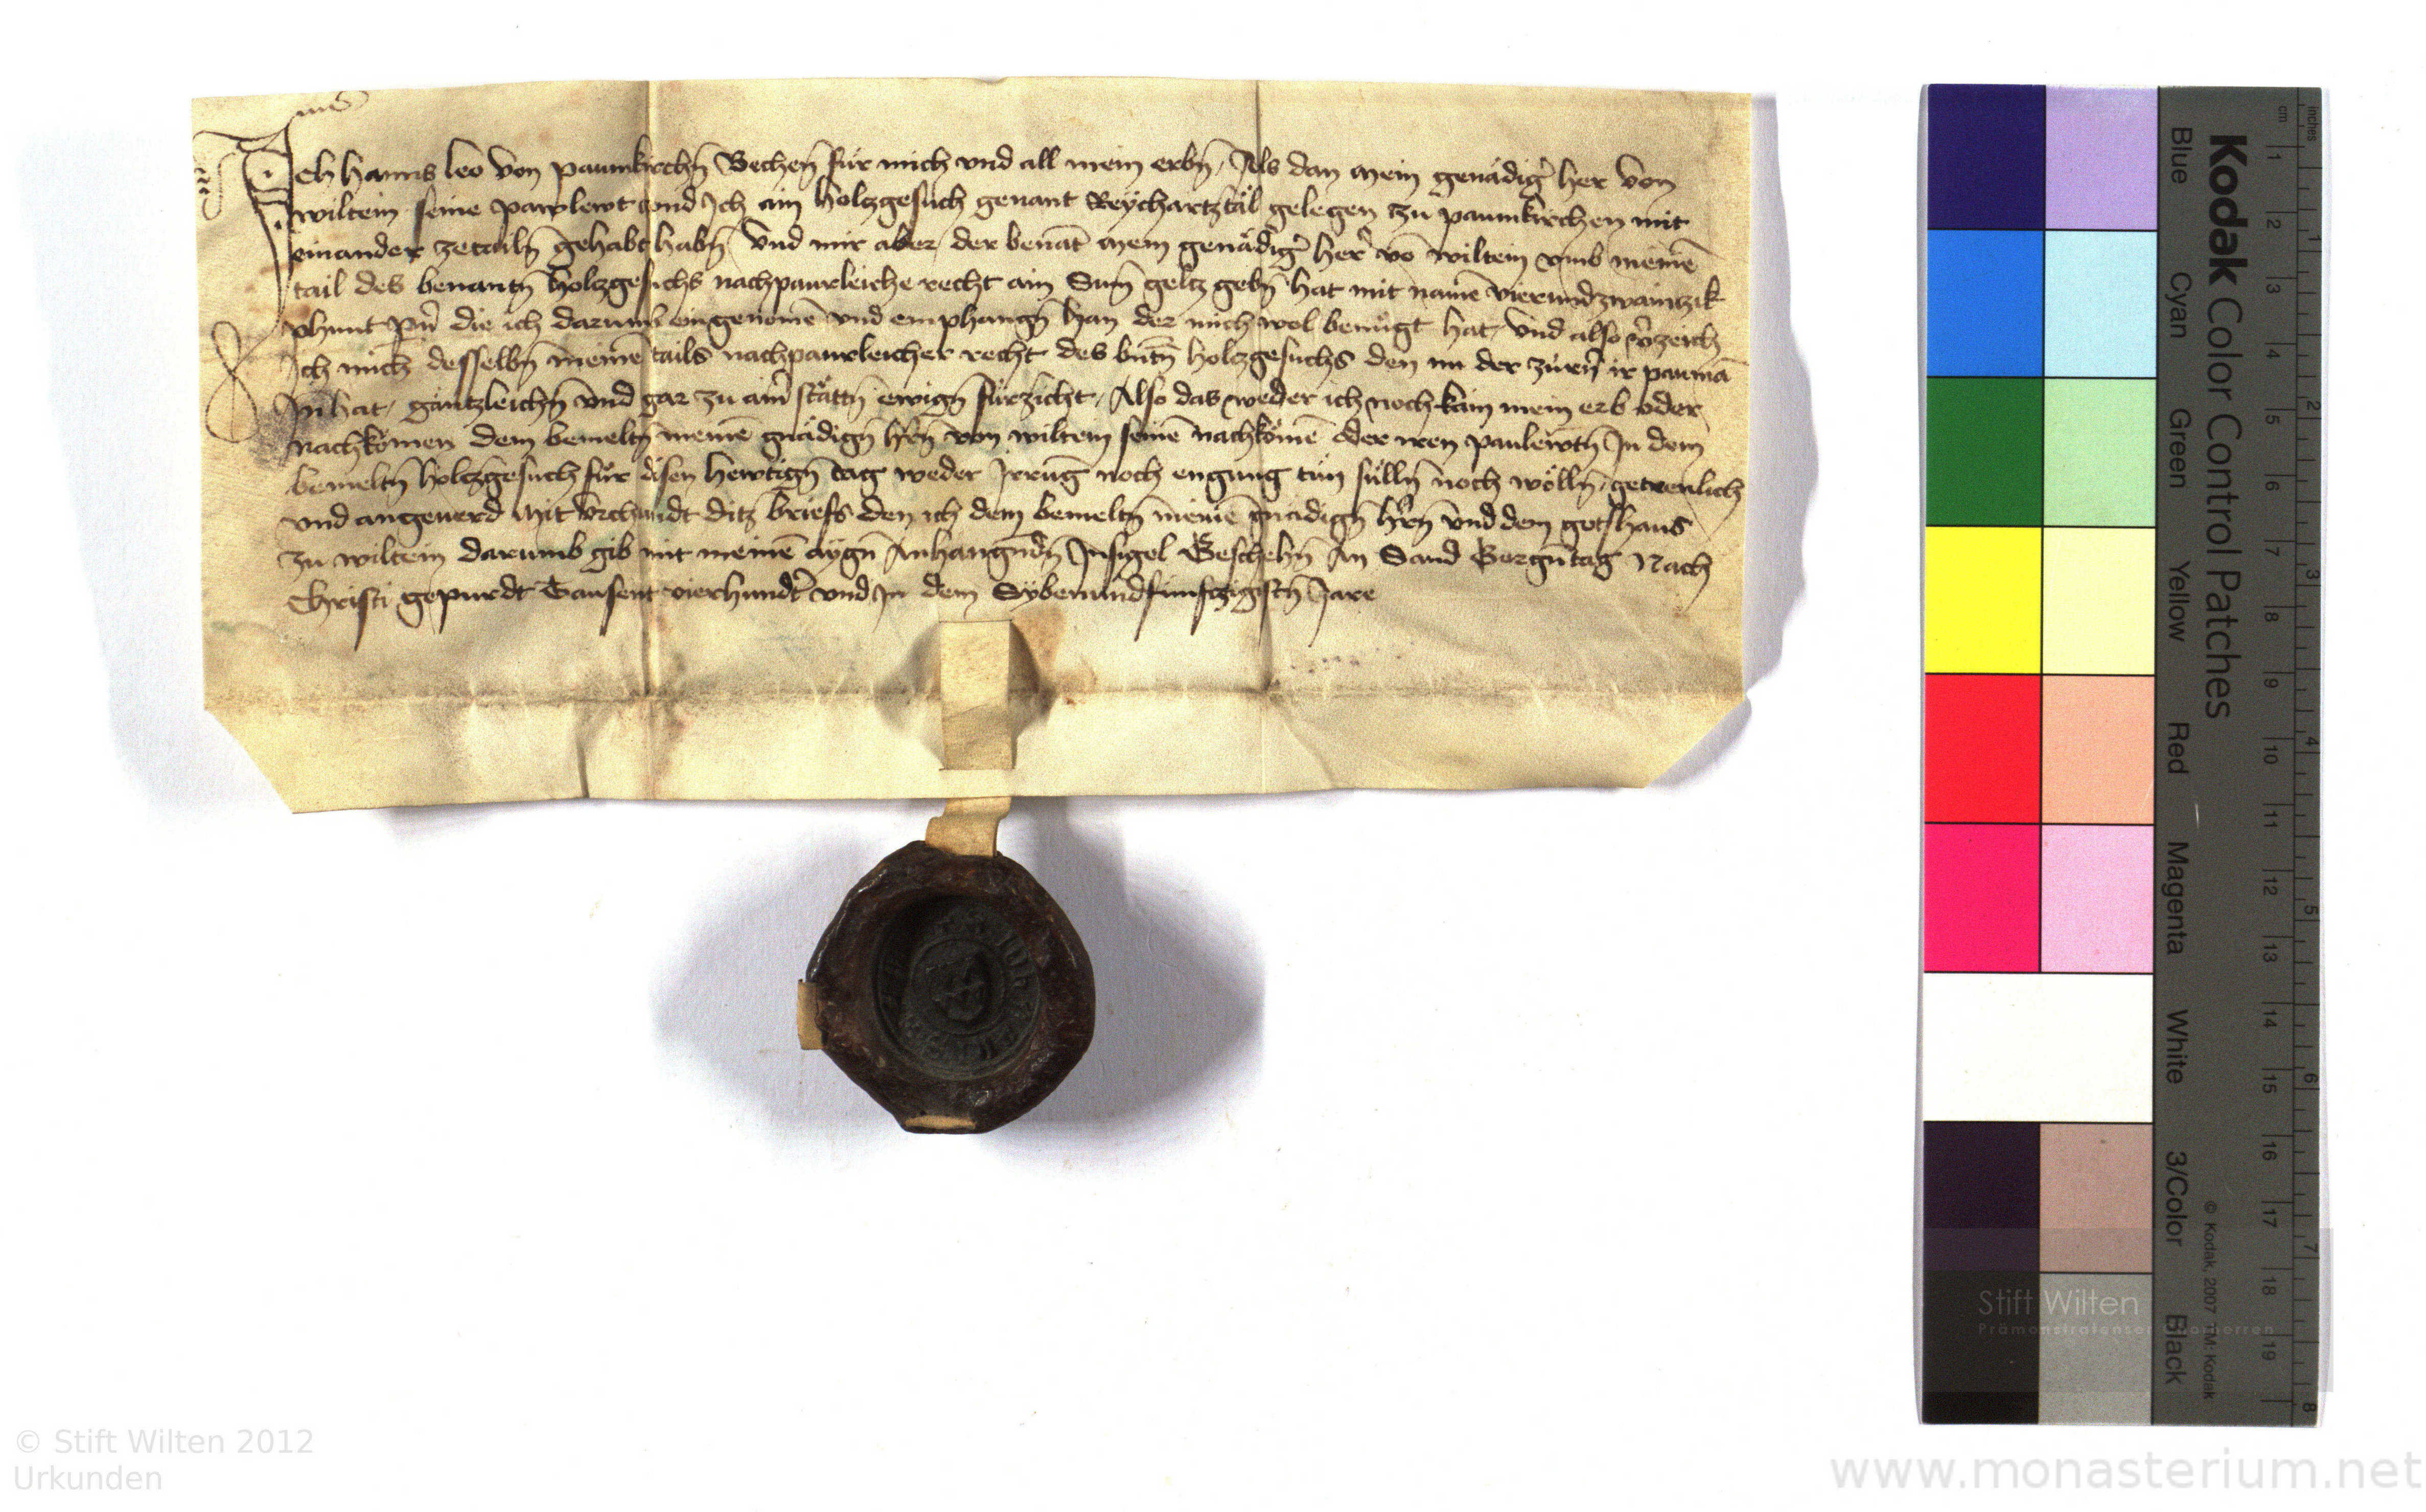 Ich Hanns leo von paumkirchn̄ Bechen̄ für mich vnd all mein erbn̄ / Als dan mein genädig̾ her von
wiltein seine pawlewt vnd Ich ain holzgesuch genant Reÿchartztal gelegen zu paumkirchen mit
einander zetailn̄ gehabt habn̄ / Vnd mir aber der benāt mein genädig̾ her̾ vō wiltein vmb meinē
tail des benantn̄ holczgesuchs nachpaurleiche recht ain Sum̄ geltz gebn̄ hat mit namē vierundzwaintzik
phunt pn̾ die ich darumb eingenomē vnd emphangn̄ han der mich wol benügt hat / Vnd also v̾zeich
Ich mich desselbn̄ meinē tails nachpaurleicher recht des bntn̄ holczgesuchs den ir paumā
In hat / gäntzleichn̄ vnd gar zu aim̾ stättn̄ ewign̄ fürzicht / Also das weder ich noch kain mein erb oder
nachkömen dem bemeltn̄ meinē gnädign̄ hr̄n̄ von wiltein seinē nachkömē oder iren paulewtn̄ In dem
bemeltn̄ holczgesuch für disen hewtign̄ tag weder Irrūg noch engung tun sülln̄ noch wölln̄ / getrewlich
vnd angeuerd Mit vrchundt ditz briefs den ich dem bemeltn̄ meinē gnädign̄ hr̄n̄ vnd dem gotshaus
zu wiltein darumb gib mit meinē aygn̄ Anhangūdn̄ Insigel Geschehn̄ An Sand Gorgn̄ tag Nach
Christi gepurdt Tausent vierhundt̾ vnd In dem Sÿbenundfünfczigistn̄ Jare
Kodak Color Control Patches
Blue Cyan Green Yellow Red Magenta White 3/Color Black
© Kodak, 2007 TM: Kodak
inches
cm
1 2 3 4 5 6 7 8 9 10 11 12 13 14 15 16 17 18 19
1 2 3 4 5 6 7 8
Stift Wilten
Prämonstratenser Chorherren
© Stift Wilten 2012
Urkunden
www.monasterium.net